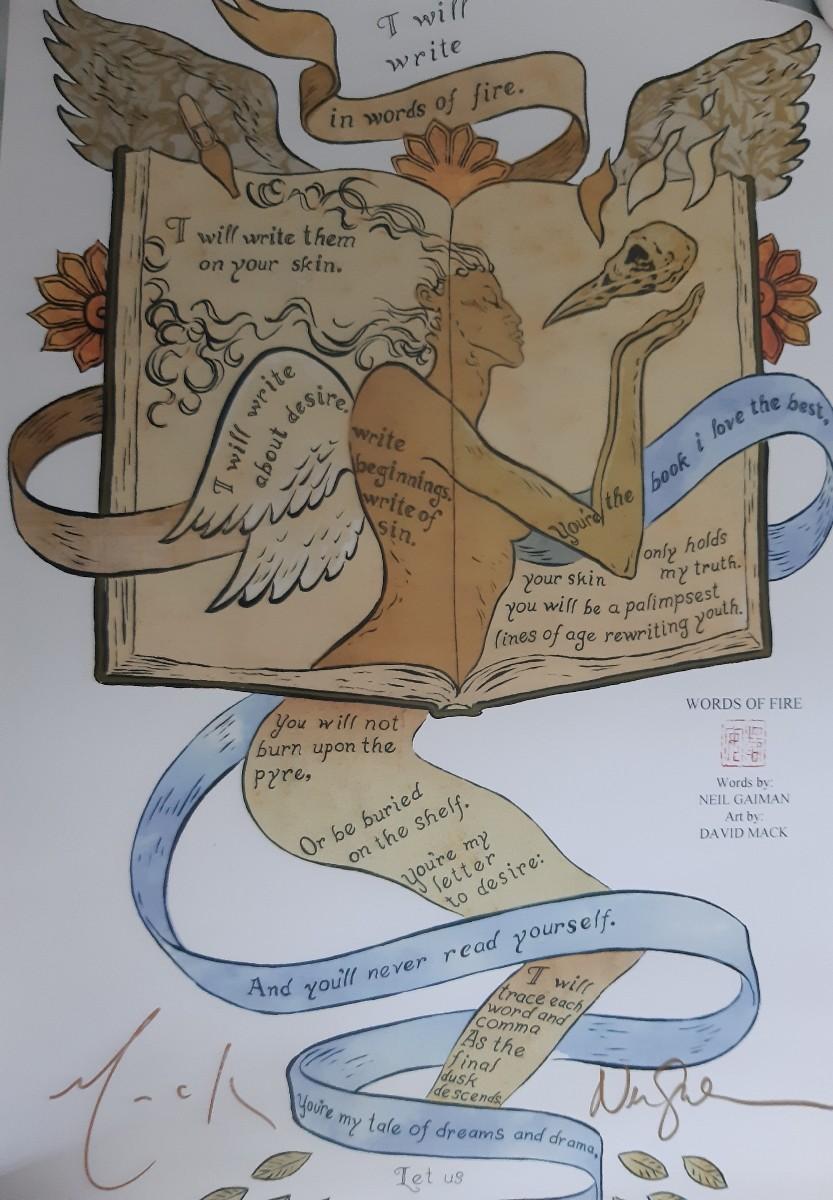 I will
write
in words of fire.
I will write them
on your skin.
I will write
about desire.
write
beginnings.
write of
sin.
You're the
book i love the best,
your skin
only holds
my truth.
you will be a palimpsest
lines of age rewriting youth.
You will not
burn upon the
pyre,
Or be buried
on the shelf.
you're my
letter
to desire:
And you'll never read yourself.
I will
trace each
word and
comma
As the
final
dusk
descends,
You're my tale of dreams and drama,
Let us
WORDS OF FIRE
Words by:
NEIL GAIMAN
Art by:
DAVID MACK
Mack